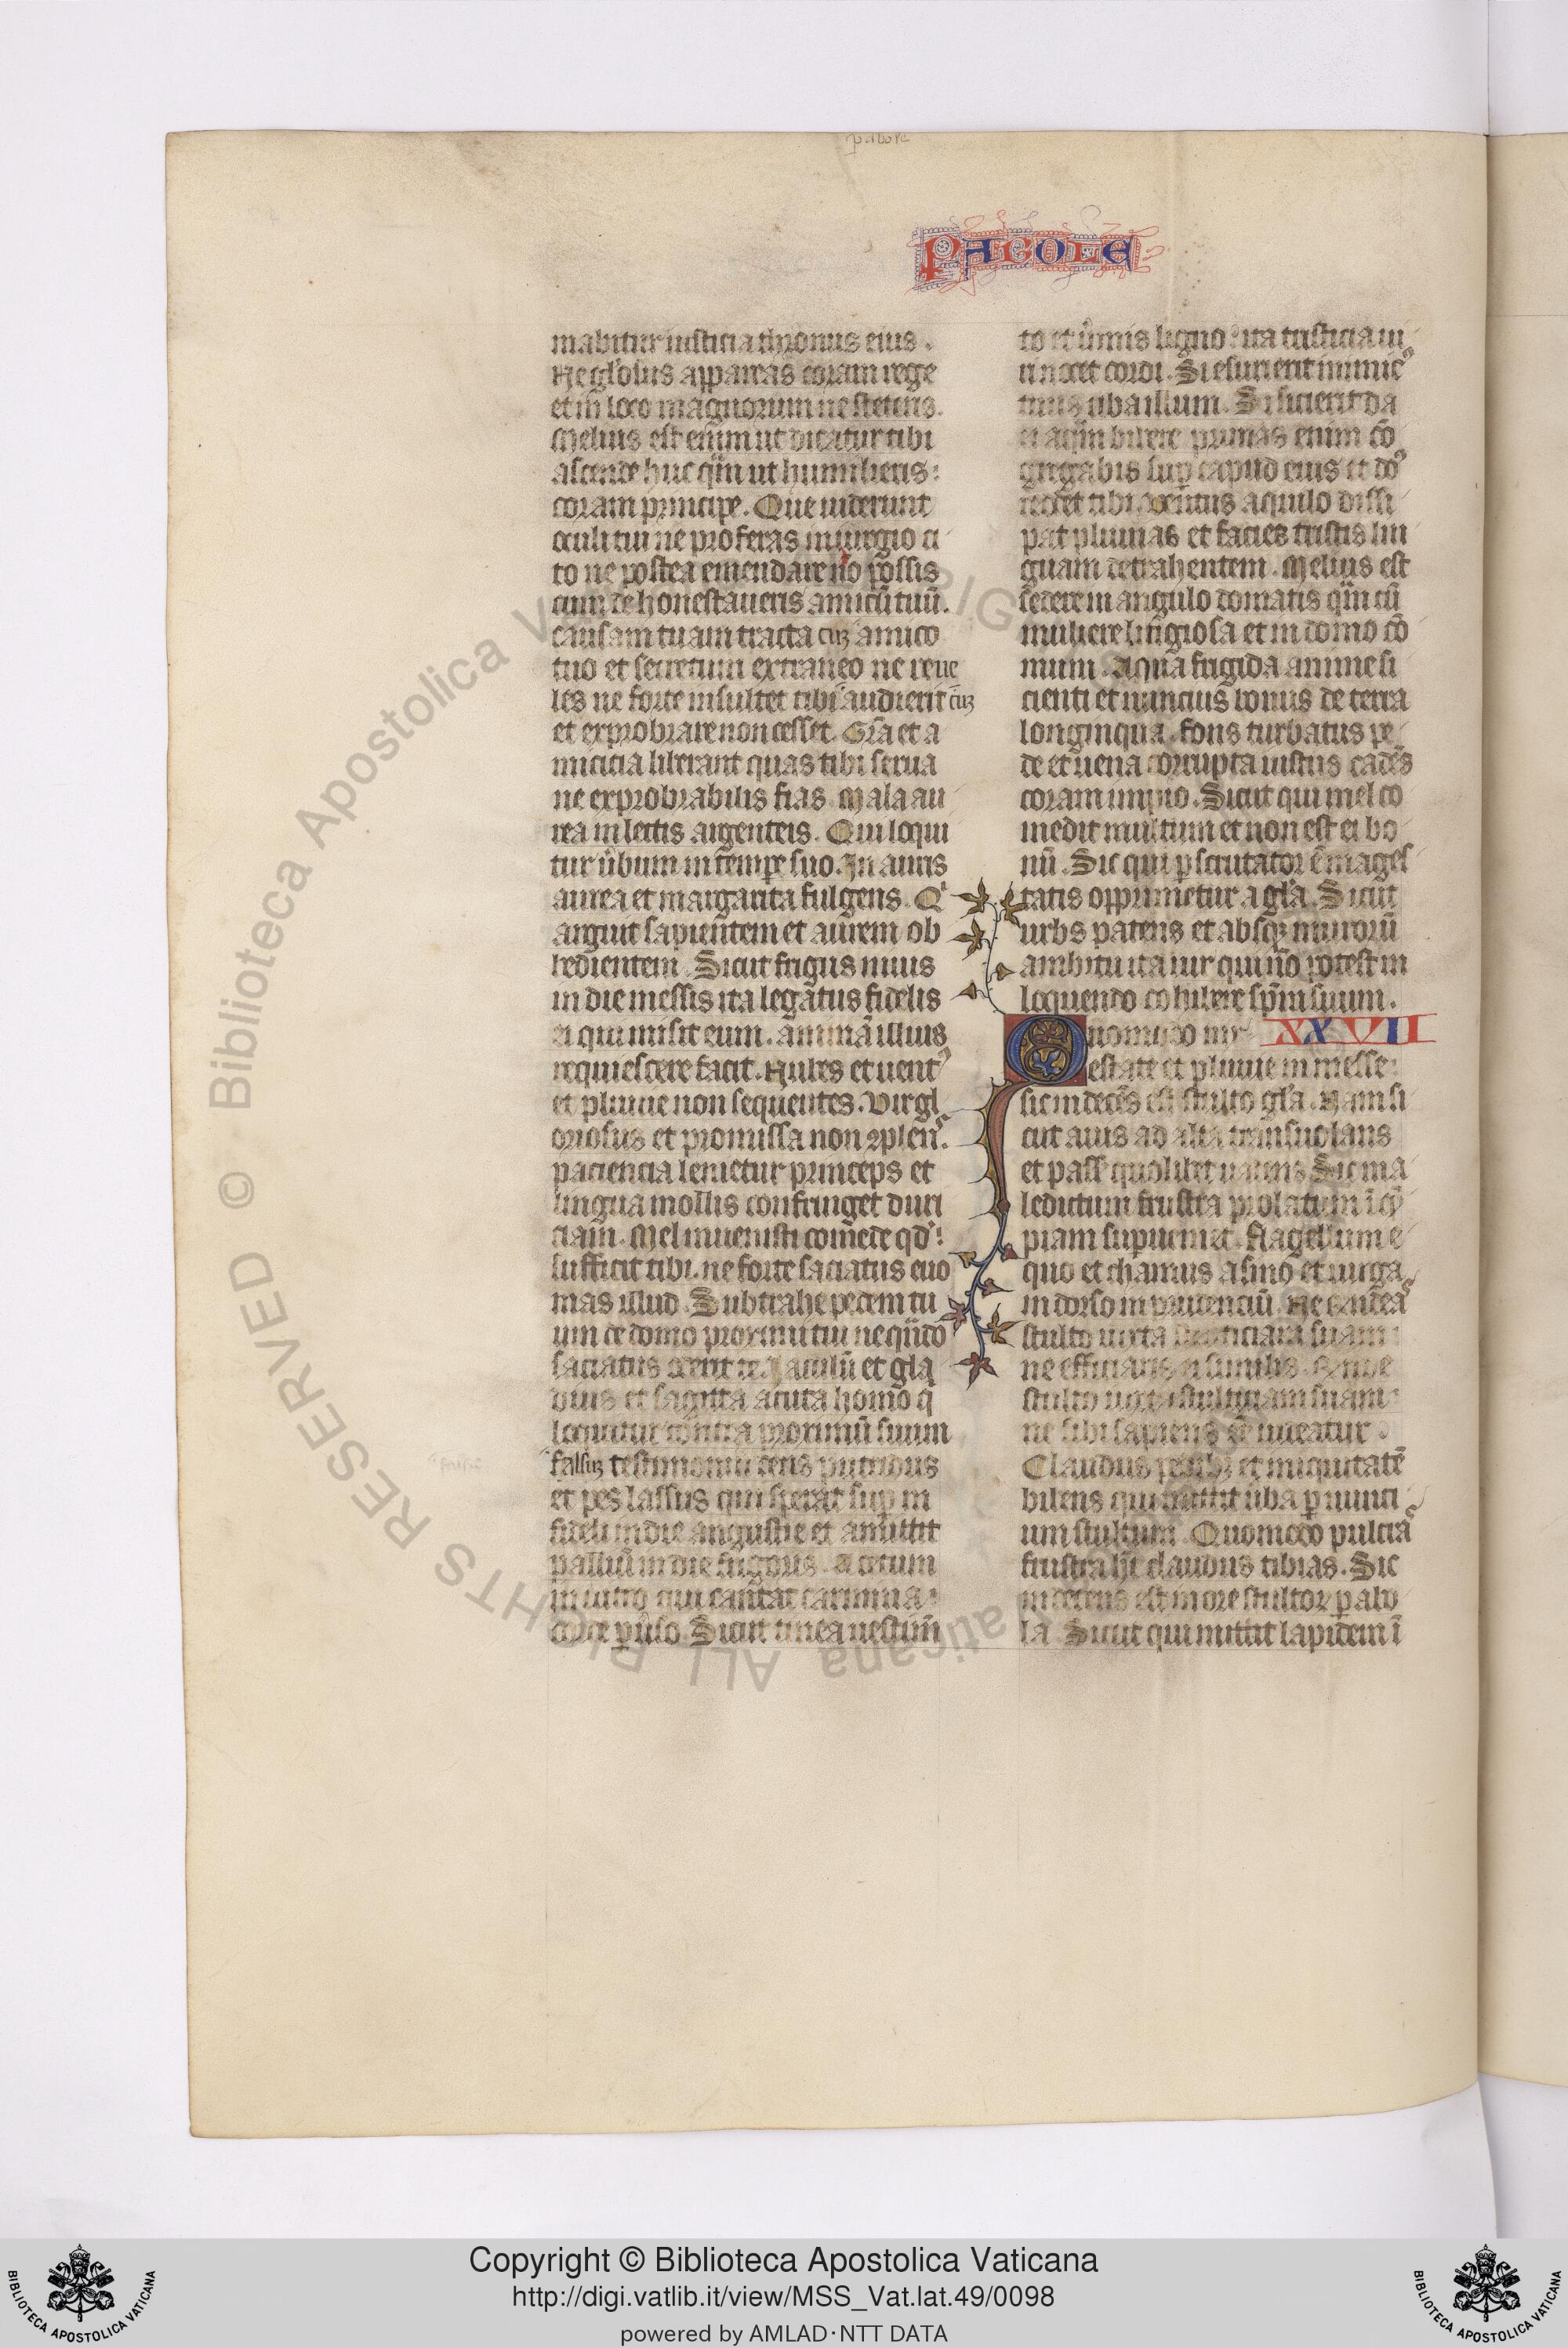 PARABOLE
mabitur iusticia thronus eius .
Ne gl'osus appareas coram rege
et in loco magnorum ne steteris.
Melius est enim ut dicatur tibi
ascende huc qm̄ ut humilieris :
coram principe . Que uiderunt
oculi tui ne proferas in iurgio ci
to ne postea emendare nō possis
cum dehonestaueris amicū tuū .
causam tuam tracta cuz amico
tuo et secretum extraneo ne reue
les ne forte insultet tibi audierit cūz
et exprobrare non cesset . Grā et a
micicia liberant quas tibi serua
ne exprobrabilis fias . Mala au
rea in lectis argenteis . Qui loqui
tur ūbum in tempe suo . In auris
aurea et margarita fulgens . Qi
arguit sapientem et aurem ob
edientem . Sicut frigus niuis
in die messis ita legatus fidelis
ei qui misit eum . animā illius
requiescere facit . Nubes et uent'
et pluuie non sequentes . Vir gl
oriosus et promissa non 2plens .
paciencia lenietur princeps et
lingua mollis confringet duri
ciam . Mel inuenisti comede qd :
sufficit tibi . ne forte saciatus euo
mas illud . Subtrahe pedem tu
um de domo proximi tui neqn̄do
saciatus oderit te . Iaculū et gla
dius et sagitta acuta homo q
loquitur contra proximū suum
falsuz testimoniū dens putridus
et pes lassus qui sperat sup in
fideli in die angustie et amittit
palliū in die frigoris . Acetum
in nitro qui cantat carmina :
corde pessimo . Sicut tinea uestimn̄
to et ūmis ligno : ita tristicia ui
ri nocet cordi . Si esurierit inimic'
tuus ciba illum . Si sitierit da
ei aqm̄ bibere prunas enim cō
gregabis sup capud eius et do'
reddet tibi . Ventus aquilo dissi
pat pluuias et facies tristis lin
guam detrahentem . Melius est
sedere in angulo domatis qm̄ cū
muliere litigiosa et in domo cō
muni . Aqua frigida anime si
cienti et nuncius bonus de terra
longinqua . Fons turbatus pe
de et uena corrupta iustus cadēs
coram impio . Sicut qui mel co
medit multum et non est ei bo
nū . Sic qui pscrutator ē mages
tatis opprimetur a gla . Sicut
urbs patens et absq3 murorū
ambitu ita uir qui nō potest in
loquendo cohibere spm̄ suum .
Quomodo nix XXVII
estate et pluuie in messe :
sic indecēs est stulto gl'a . Nam si
cut auis ad alta transuolans
et passer quolibet uadens Sic ma
ledictum frustra prolatum ī q̄
piam supueniet . Flagellum e
quo et chamus asino et uirga
in dorso inprudenciū . Ne respondeas
stulto iuxta stulticiam suam :
ne efficiaris ei similis . Responde
stulto iuxta stulticiam suam :
ne sibi sapiens eē uideatur .
Claudus pedib3 et iniquitatē
bibens qui mittit ūba p nunci
um stultum . Quomodo pulcras
frustra ht claudus tibias . Sic
indecens est in ore stultor parabo
la . Sicut qui mittit lapidem ī
Copyright © Biblioteca Apostolica Vaticana
http://digi.vatlib.it/view/MSS_Vat.lat.49/0098
powered by AMLAD·NTT DATA